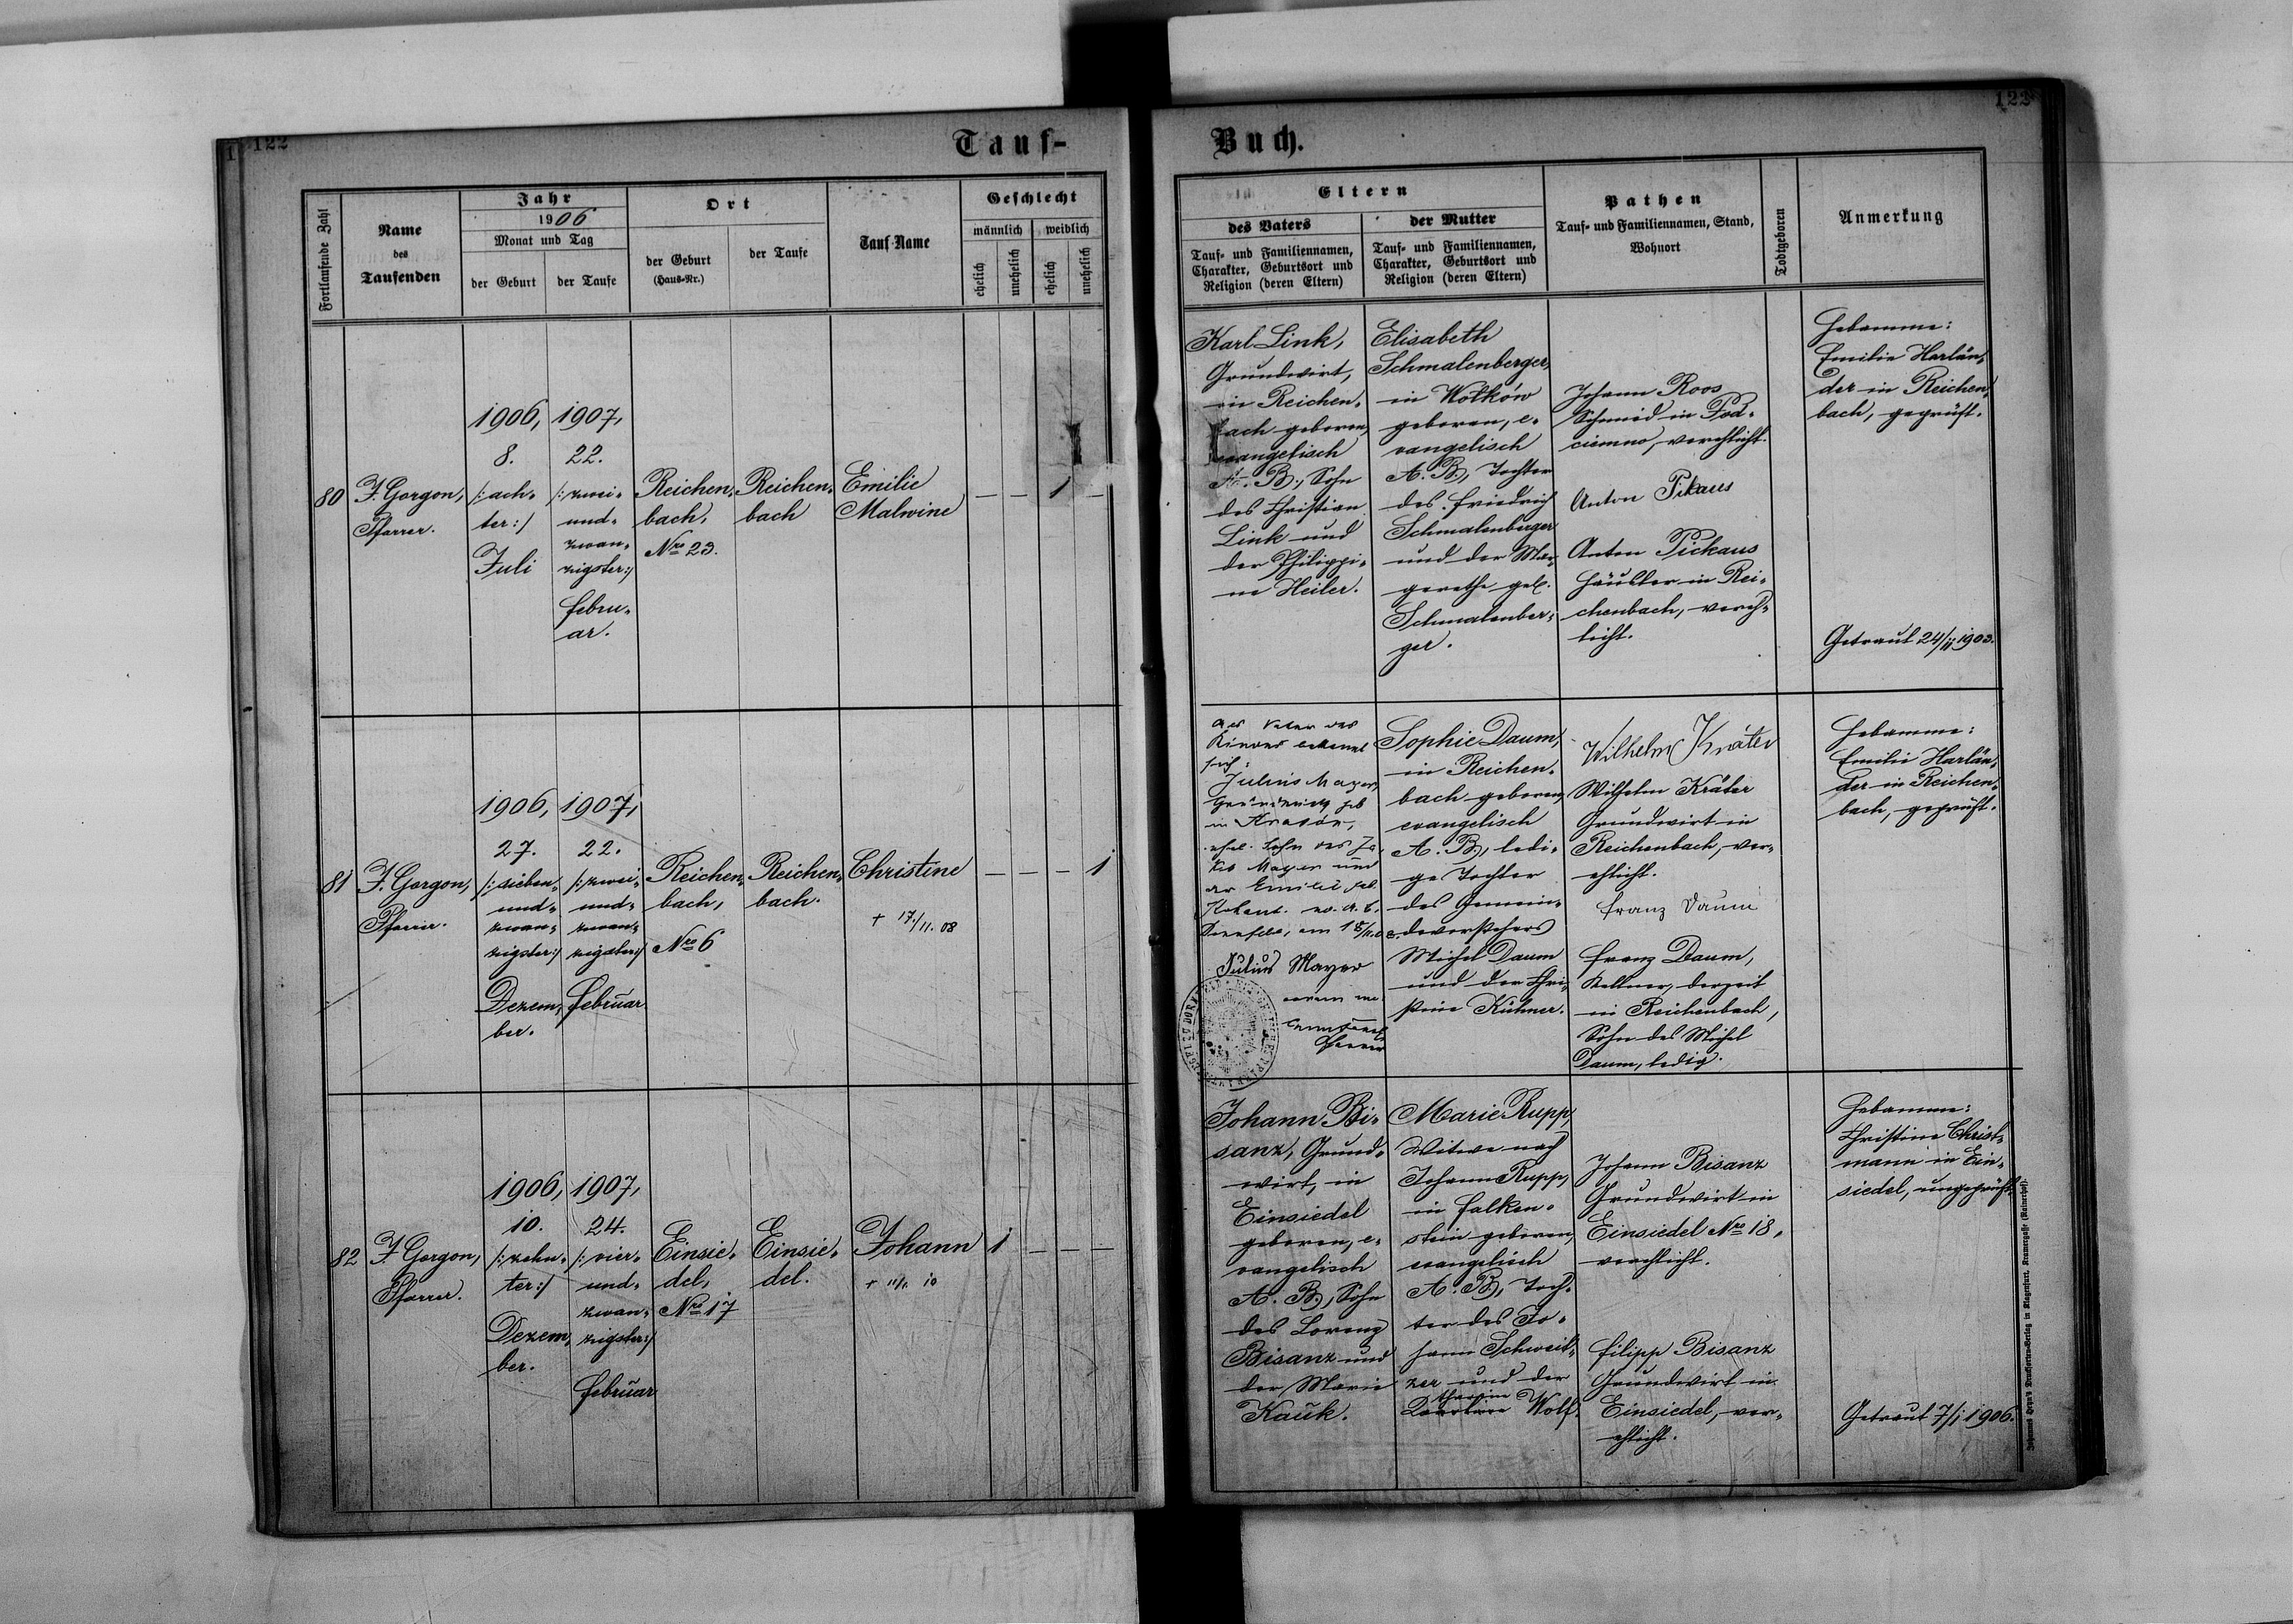 122
Tauf-
Fortlaufende Zahl
Name
des
Taufenden
Jahr
1906
Monat und Tag
der Geburt
der Taufe
Ort
der Geburt
(Haus-Nr.)
der Taufe
Tauf-Name
Geschlecht
männlich
weiblich
ehelich
unehelich
ehelich
unehelich
80
F. Gorgon,
Pfarrer.
1906,
8.
/:ach-
ter:/
Juli
1907,
22.
/:zwei-
und-
zwan-
zigster:/
Febru-
ar.
Reichen-
bach,
Nro 23.
Reichen-
bach
Emilie
Malwine
—
—
1
—
81
F. Gorgon,
Pfarrer.
1906,
27.
/:sieben-
und-
zwan-
zigster:/
Dezem-
ber.
1907,
22.
/:zwei-
und-
zwan-
zigster:/
Februar
Reichen-
bach,
Nro 6
Reichen-
bach.
Christine
+ 17/11. 08
—
—
—
1
82
F. Gorgon,
Pfarrer.
1906,
10.
/:zehn-
ter:/
Dezem-
ber.
1907,
24.
/:vier-
und-
zwan-
zigster:/
Februar
Einsie-
del,
Nro 17
Einsie-
del.
Johann
1
—
—
—
122
Buch.
Eltern
des Vaters
Tauf- und Familiennamen,
Charakter, Geburtsort und
Religion (deren Eltern)
der Mutter
Tauf- und Familiennamen,
Charakter, Geburtsort und
Religion (deren Eltern)
Pathen
Tauf- und Familiennamen, Stand,
Wohnort
Todtgeboren
Anmerkung
Karl Link,
Grundwirt,
in Reichen-
bach geboren,
evangelisch
A. B., Sohn
des Christian
Link und
der Philippi-
ne Heiler.
Elisabeth
Schmalenberger,
in Wołków
geboren, e-
vangelisch
A. B., Tochter
des Friedrich
Schmalenberger
und der Mar-
garethe geb.
Schmalenber-
ger.
Johann Roos
Schmid in Pod-
ciemno, verehlicht.
Anton Pikaus
Anton Pickaus
Häusler in Rei-
chenbach, vereh-
licht.
Hebamme:
Emilie Harlän-
der in Reichen-
bach, geprüft.
Getraut 24/ii 1903.
Als Vater des
Kindes bekennt
sich:
Julius Mayer,
Grundwirt geb
in
ehel. Sohn des Ja-
kob Mayer und
der Emilie geb.
Julius Mayer
Pfarrer
Sophie Daum,
in Reichen-
bach geboren,
evangelisch
A. B., ledi-
ge Tochter
des Gemein-
devorstehers
Michel Daum
und der Chri-
stine Kühner.
Wilhelm Kräter
Wilhelm Kräter
Grundwirt in
Reichenbach, ver-
ehlicht.
Franz Daum
Franz Daum,
Kellner, derzeit
in Reichenbach,
Sohn des Michel
Daum, ledig.
Hebamme:
Emilie Harlän-
der in Reichen-
bach, geprüft.
Johann Bi-
sanz, Grund-
wirt, in
Einsiedel
geboren, e-
vangelisch
A. B., Sohn
des Lorenz
Bisanz und
der Marie
Kauk.
Marie Rupp,
Witwe nach
Johann Rupp,
in Falken-
stein geboren,
evangelisch
A. B., Toch-
ter des Jo-
hann Schweit-
zer und der
Wolf.
Johann Bisanz
Grundwirt in
Einsiedel Nro 18,
verehlicht.
Filipp Bisanz
Grundwirt in
Einsiedel, ver-
ehlicht.
Hebamme:
Christine Christ-
mann in Ein-
siedel, ungeprüft.
Getraut 7/i 1906.